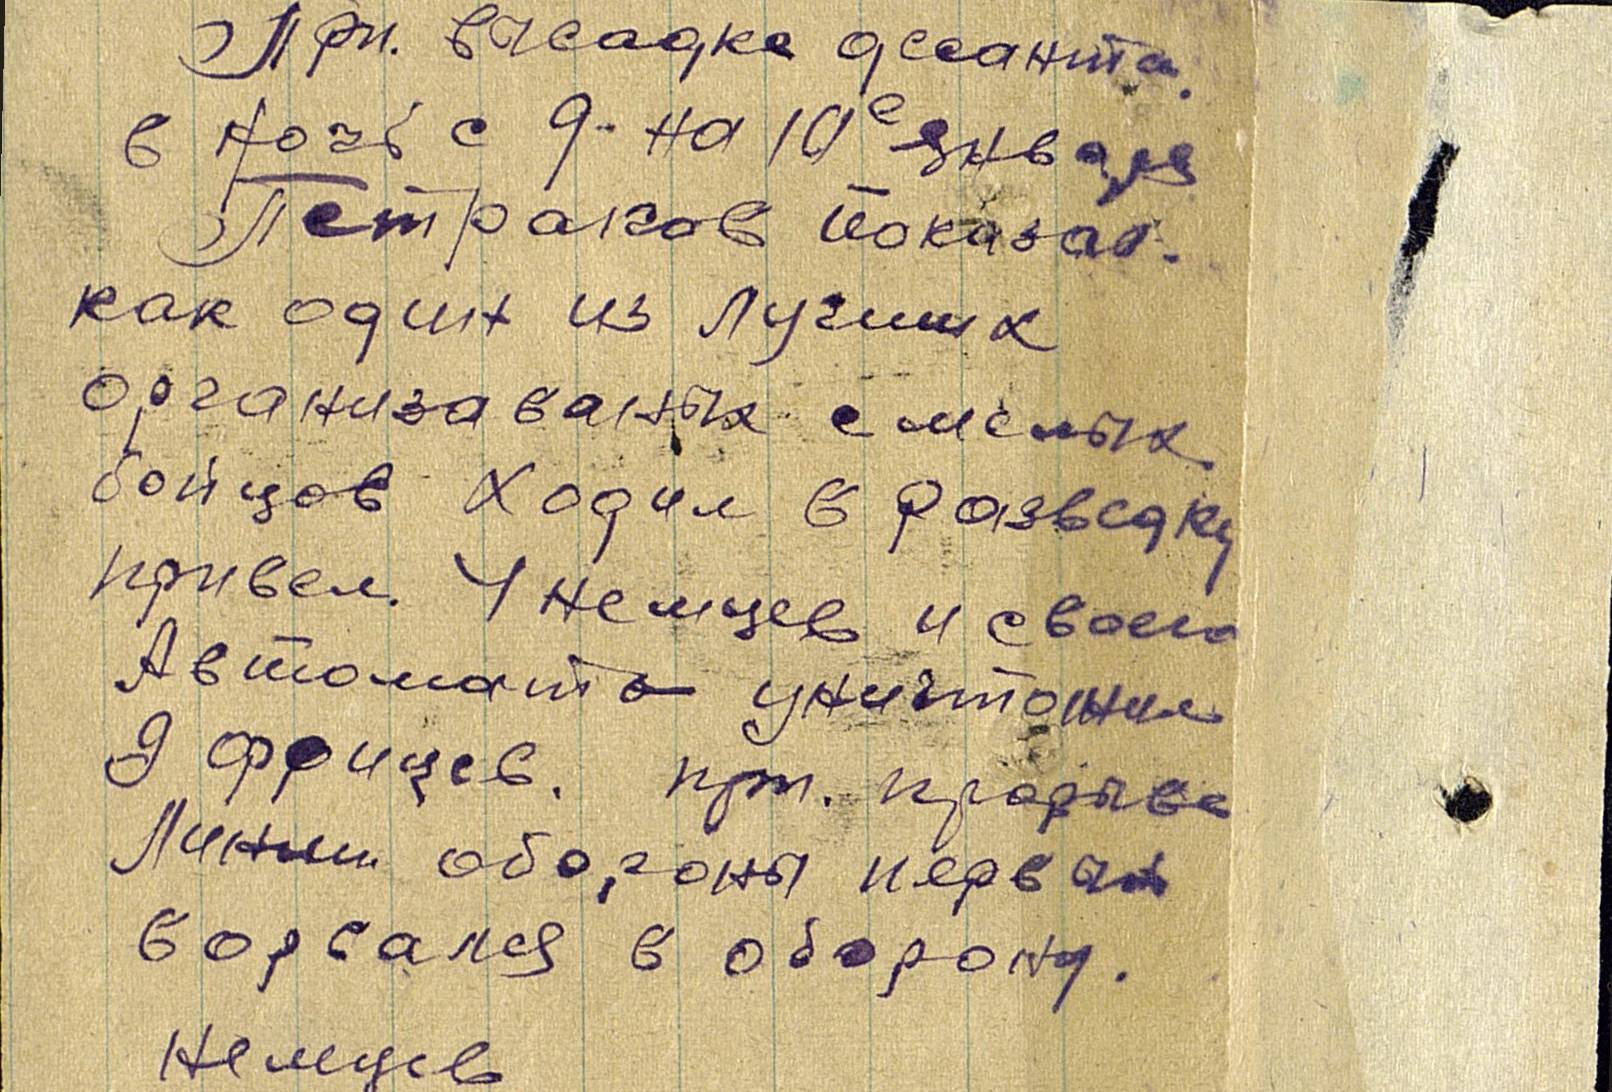 При. высадке дссанта.
в ночь с 9. на 10е января
Петраков показал.
как один из лучших
организаваных смелых
бойцов Ходил в разведку
привел. 4 немцев и своего
Автомата уничтожил
9 фрицев. при. прорыве
Линии обороны первый
ворвался в оборону.
немцев